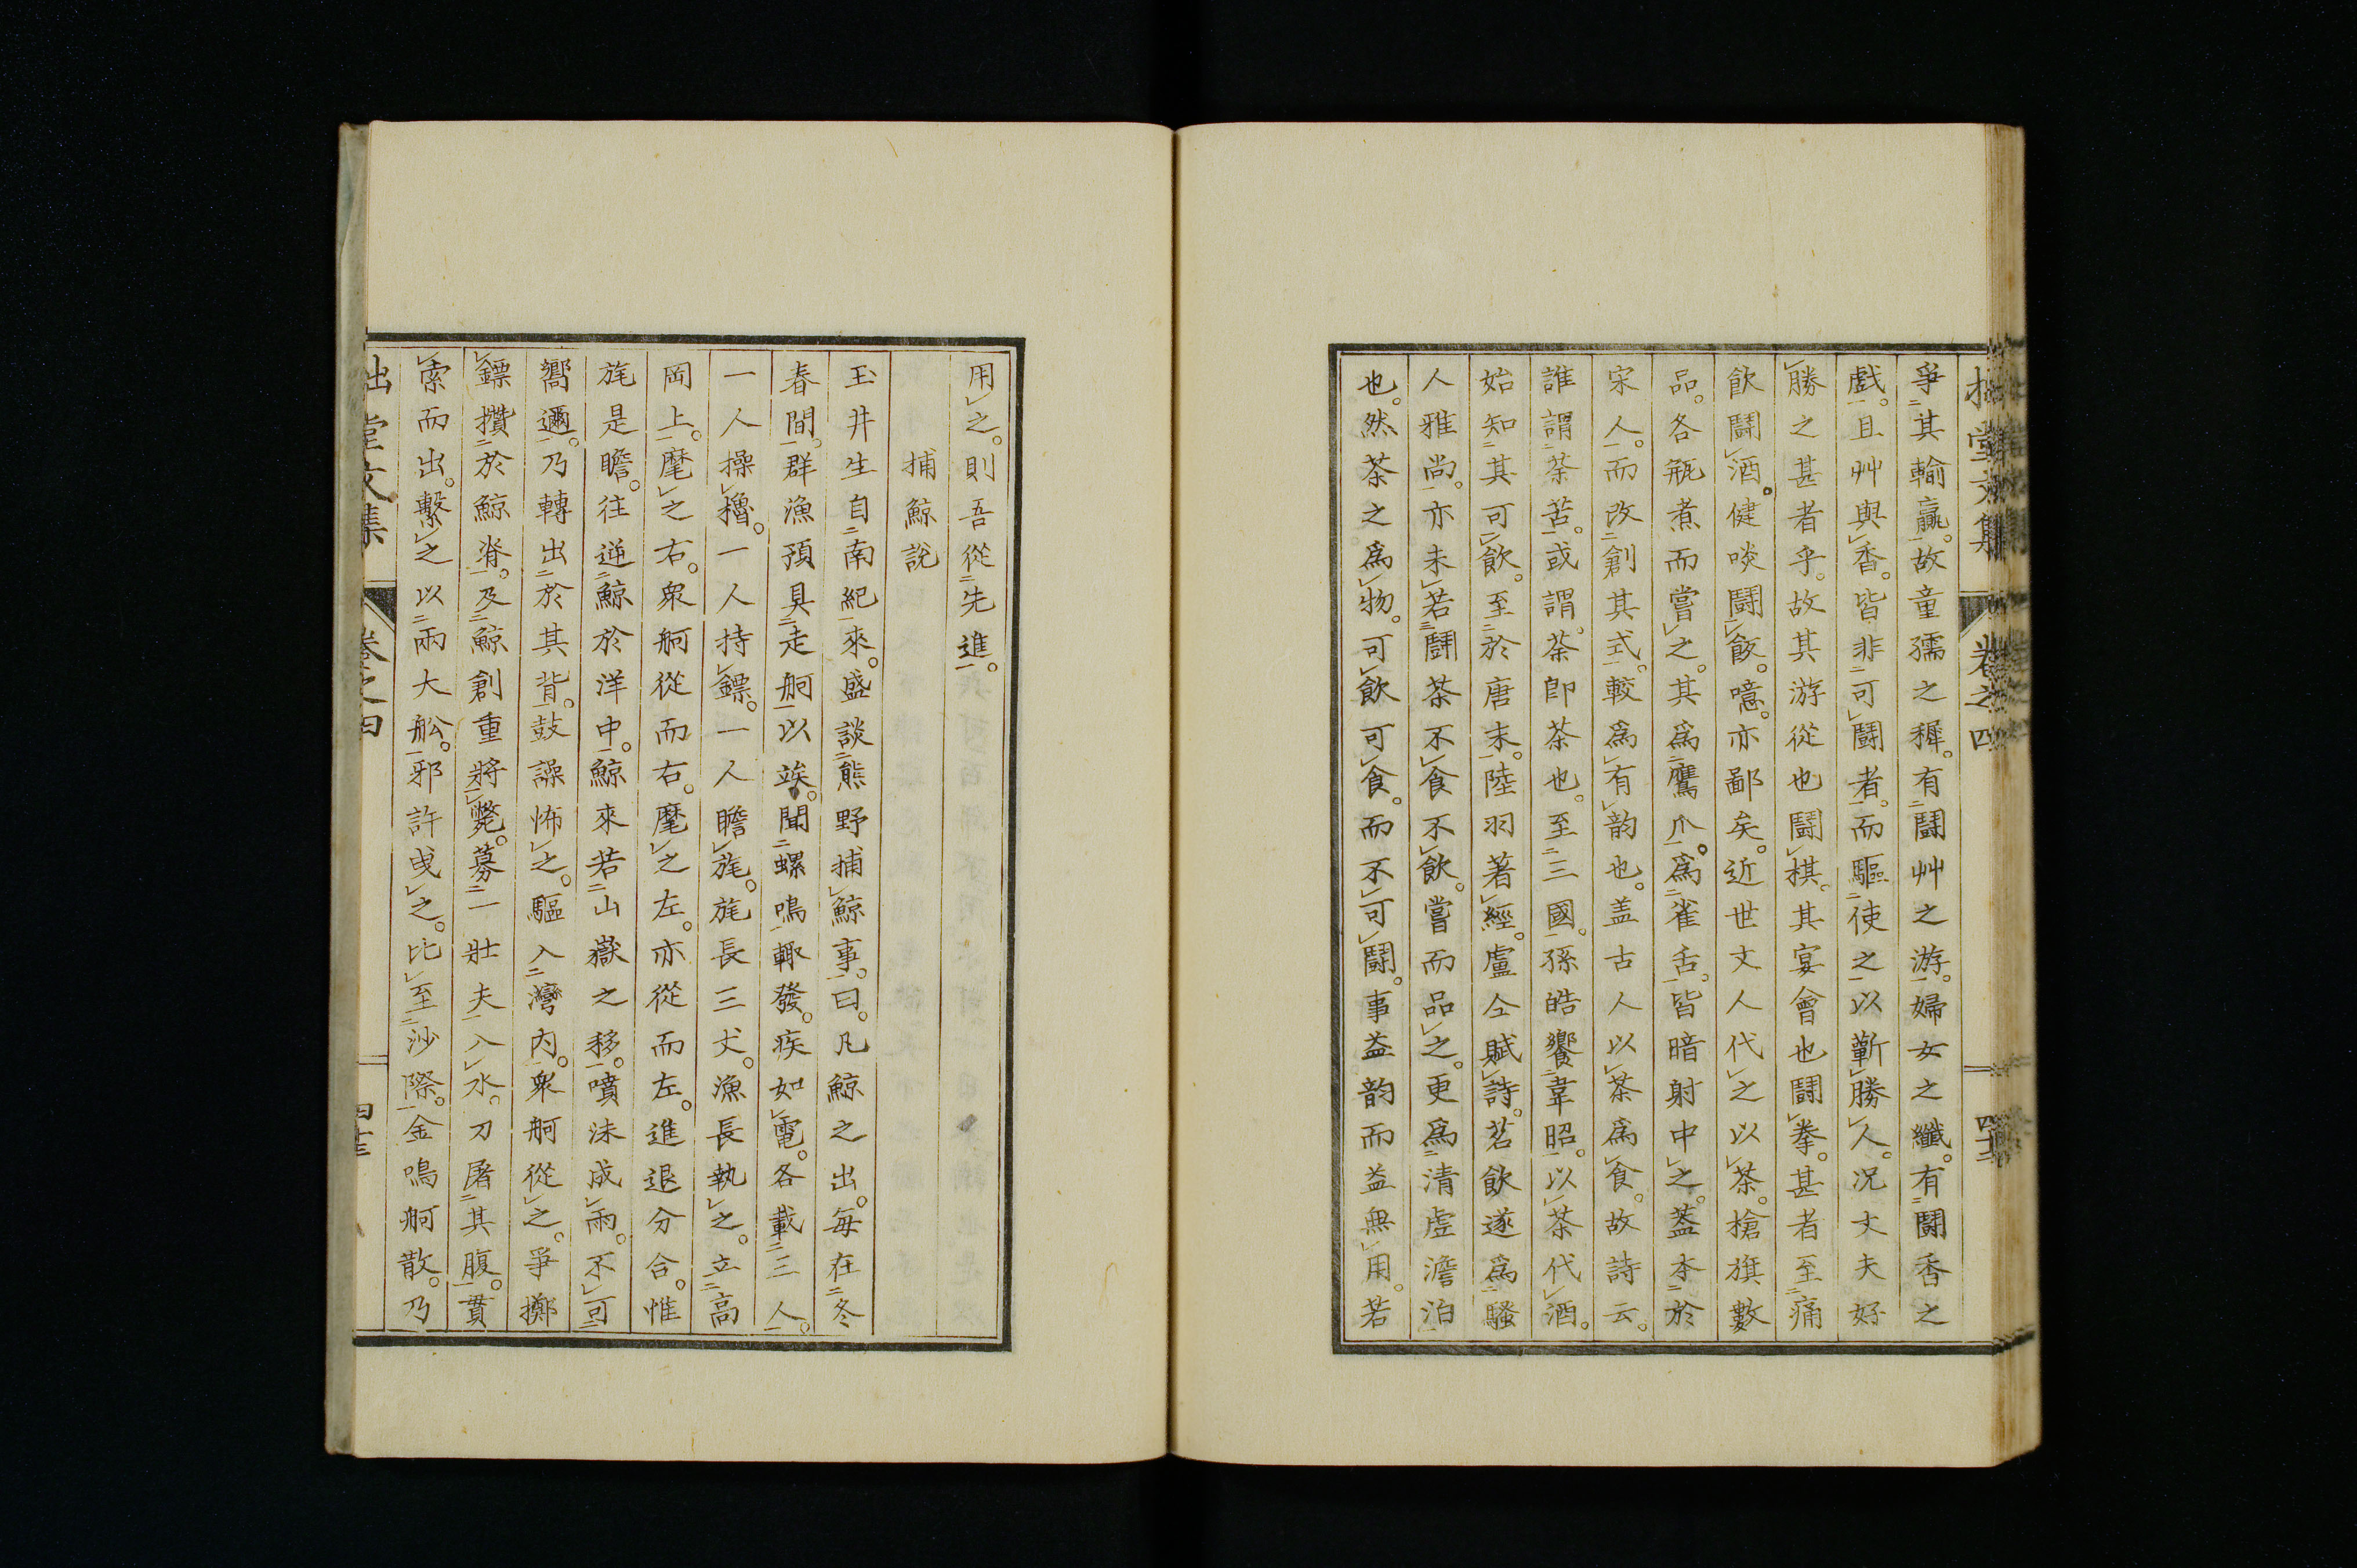 拙堂文集 卷之四 四十二
爭其輸贏。故童孺之穉。有鬪艸之游。婦女之纖。有鬪香之
戲。且艸與香。皆非可鬪者。而驅使之以蘄勝人。況丈夫好
勝之甚者乎。故其游從也鬪棋。其宴會也鬪拳。甚者至痛
飮鬪酒。健啖鬪飯。噫。亦鄙矣。近世文人代之以茶。槍旗數
品。各瓶煮而嘗之。其爲鷹爪。爲雀舌。皆暗射中之。葢本於
宋人。而改創其式。較爲有韵也。盖古人以茶爲食。故詩云。
誰謂荼苦。或謂。荼卽茶也。至三國。孫皓饗韋昭。以茶代酒。
始知其可飮。至於唐末。陸羽著經。盧仝賦詩。茗飮遂爲騷
人雅尚。亦未若鬪茶不食不飮。嘗而品之。更爲清虛澹泊
也。然茶之爲物。可飮可食。而不可鬪。事益韵而益無用。若
用之。則吾從先進。
捕鯨說
玉井生自南紀來。盛談熊野捕鯨事。曰。凡鯨之出。每在冬
春間。群漁預具走舸以竢。聞螺鳴輙發。疾如電。各載三人。
一人操櫓。一人持鏢。一人瞻旄。旄長三丈。漁長執之。立高
岡上。麾之右。衆舸從而右。麾之左。亦從而左。進退分合。惟
旄是瞻。往逆鯨於洋中。鯨來若山嶽之移。噴沫成雨。不可
嚮邇。乃轉出於其背。鼓譟怖之。驅入灣內。衆舸從之。爭擲
鏢攢於鯨脊。及鯨創重將斃。募一壯夫入水。刀屠其腹。貫
索而出。繫之以兩大舩。邪許曳之。比至沙際。金鳴舸散。乃
拙堂文集 卷之四